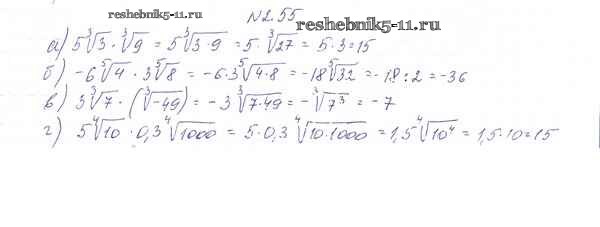 reshebnik5-11.ru
№2.55
reshebnik5-11.ru
а) 5∛3 · ∛9 = 5∛(3·9) = 5·∛27 = 5·3=15
б) -6⁵√4 · 3⁵√8 = -6·3⁵√(4·8) = -18⁵√32 = -18:2 = -36
в) 3∛7 · (∛-49) = -3∛(7·49) = -∛(7³) = -7
г) 5⁴√10 · 0,3⁴√1000 = 5·0,3⁴√(10·1000) = 1,5⁴√(10⁴) = 1,5·10=15